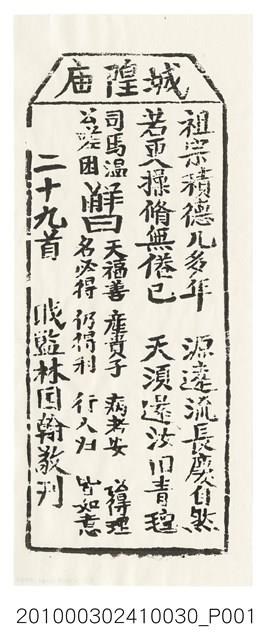 城隍庙
祖宗積德几多年 源遠流長慶自然
若更操脩無倦已 天須還汝旧青氊
司馬温公嗟困
解曰 天福善 產貴子 病者安 訟得理
名必得 仍得利 行人归 皆如意
二十九首 戝監林国翰敬刋
201000302410030_P001